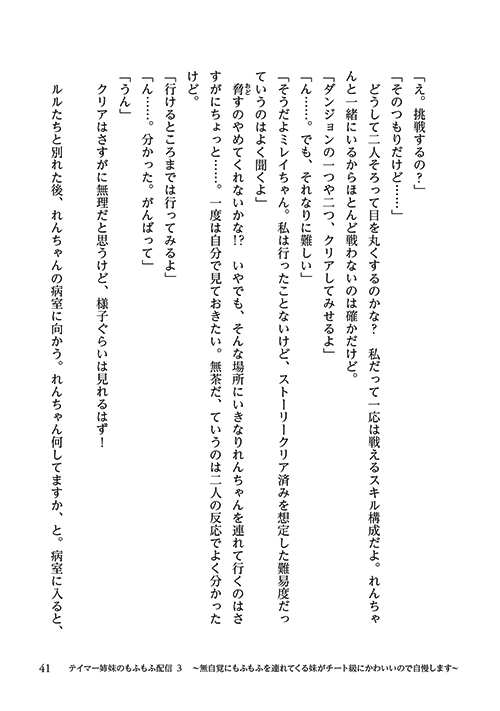 「え。挑戦するの？」
「そのつもりだけど……」
　どうして二人そろって目を丸くするのかな？　私だって一応は戦えるスキル構成だよ。れんちゃ
んと一緒にいるからほとんど戦わないのは確かだけど。
「ダンジョンの一つや二つ、クリアしてみせるよ」
「ん……。でも、それなりに難しい」
「そうだよミレイちゃん。私は行ったことないけど、ストーリークリア済みを想定した難易度だっ
ていうのはよく聞くよ」
　脅すのやめてくれないかな!?　いやでも、そんな場所にいきなりれんちゃんを連れて行くのはさ
おど
すがにちょっと……。一度は自分で見ておきたい。無茶だ、ていうのは二人の反応でよく分かった
けど。
「行けるところまでは行ってみるよ」
「ん……。分かった。がんばって」
「うん」
　クリアはさすがに無理だと思うけど、様子ぐらいは見れるはず！
　ルルたちと別れた後、れんちゃんの病室に向かう。れんちゃん何してますか、と。病室に入ると、
41　テイマー姉妹のもふもふ配信 3　〜無自覚にもふもふを連れてくる妹がチート級にかわいいので自慢します〜